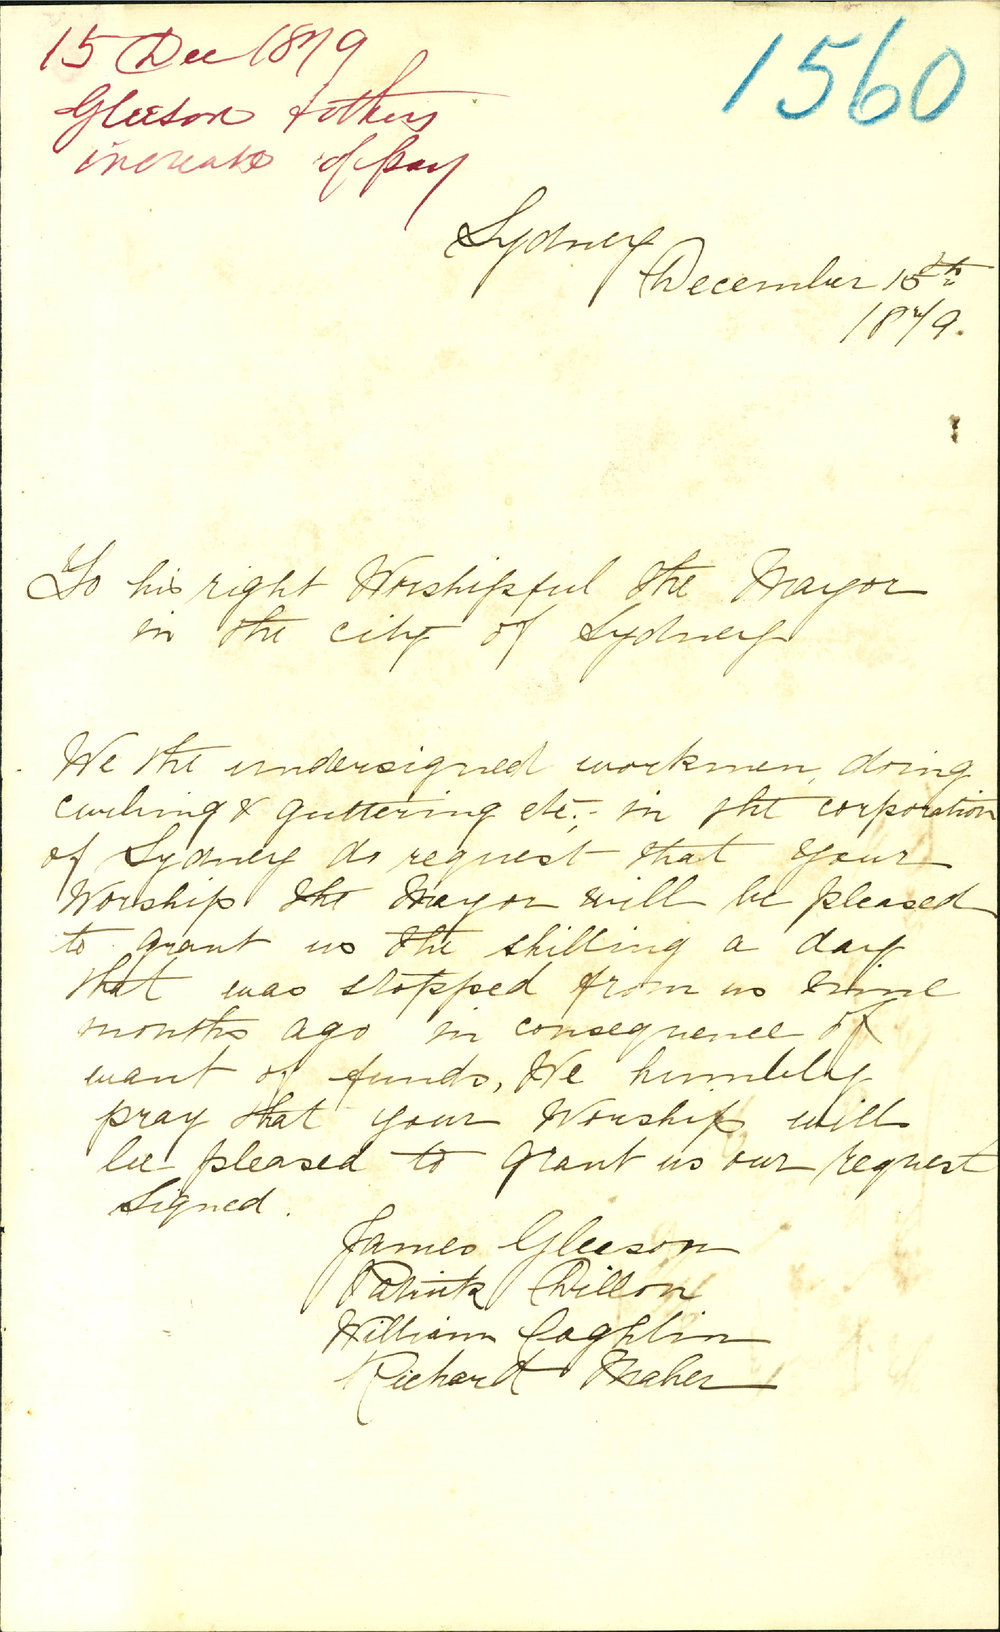 15 Dec 1879
1560
Gleeson & others
increase of pay
Sydney
December 15th
1879.
To his right Worshipful the Mayor
in the city of Sydney
We the undersigned workmen, doing
curbing & guttering etc; - in the corporation
of Sydney do request that your
Worship the Mayor will be pleased
to grant us the shilling a day
that was stopped from us nine
months ago in consequence of
want of funds, We humbly
pray that your Worship will
be pleased to grant us our request
Signed.
James Gleeson
Patrick Dillon
William Coghlin
Richard Maher